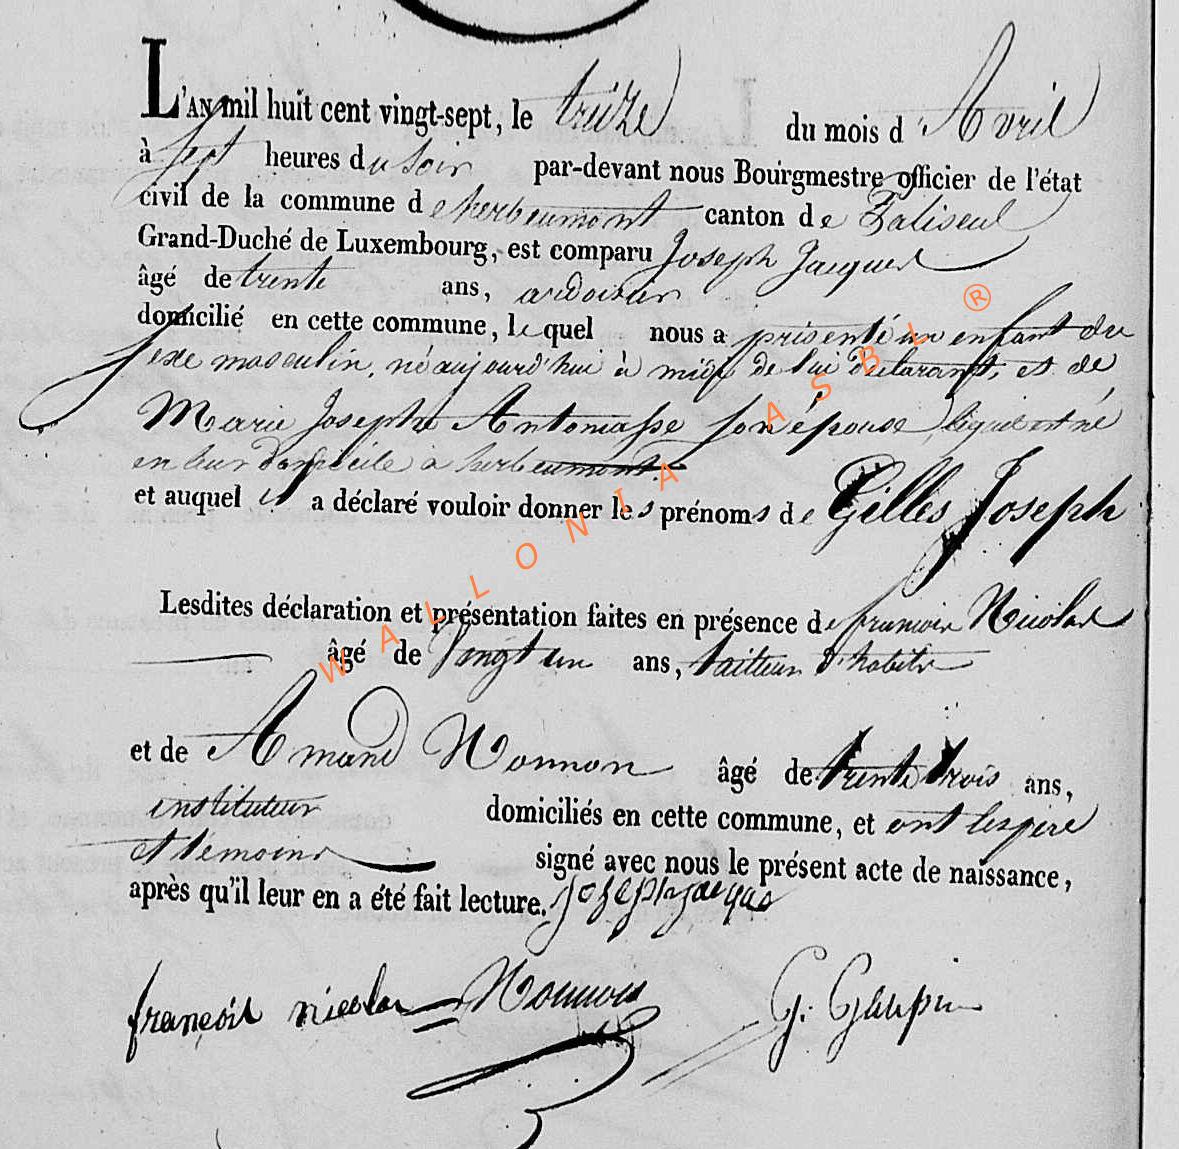 L'AN mil huit cent vingt-sept, le treize du mois d'Avril
à sept heures du soir par-devant nous Bourgmestre officier de l'état
civil de la commune de herbeumont canton de Paliseul
Grand-Duché de Luxembourg, est comparu Joseph Jacques
âgé de trente ans, ardoisier
domicilié en cette commune, lequel nous a présenté un enfant du
sexe masculin, né aujourd'hui à midi de lui déclarant, et de
Marie Josephe Antoinasse son épouse, lequel est né
en leur domicile à herbeumont.
et auquel il a déclaré vouloir donner les prénoms de Gilles Joseph
Lesdites déclaration et présentation faites en présence de francois Nicolas
âgé de Vingt un ans, tailleur d'habits
et de Amand Nonnon âgé de trente trois ans,
instituteur domiciliés en cette commune, et ont les père
et témoins signé avec nous le présent acte de naissance,
après qu'il leur en a été fait lecture. Joseph jacques
françois nicolas Nonnon G.
WALLONIA ASBL ®